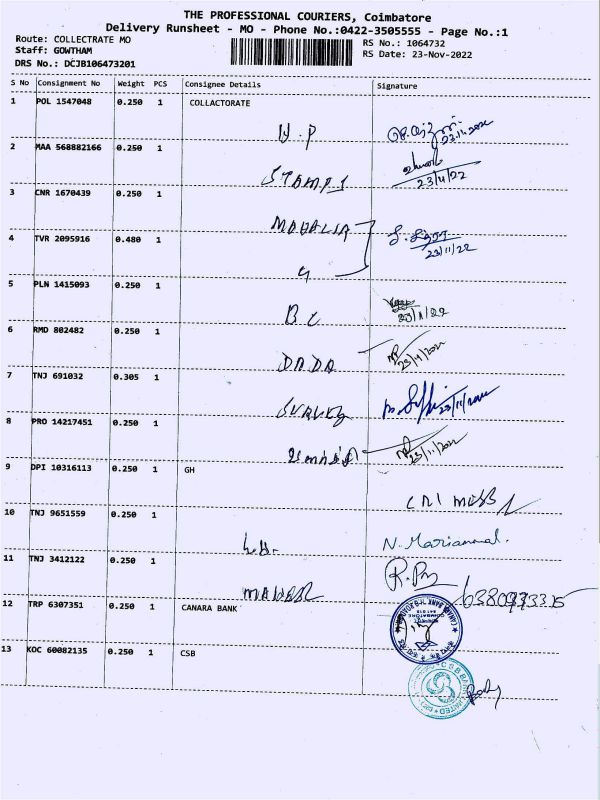 THE PROFESSIONAL COURIERS, Coimbatore
Delivery Runsheet - MO - Phone No.:0422-3505555 - Page No.:1
Route: COLLECTRATE MO
RS No.: 1064732
Staff: GOWTHAM
RS Date: 23-Nov-2022
DRS No.: DCJB106473201
S No Consignment No Weight PCS Consignee Details Signature
1 POL 1547048 0.250 1 COLLACTORATE
23.11.2022
2 MAA 568882166 0.250 1
STAMPS
23/11/22
3 CNR 1670439 0.250 1
4 TVR 2095916 0.480 1
23/11/22
5 PLN 1415093 0.250 1
BC
23/11/22
6 RMD 802482 0.250 1
DADA
23/11/2022
7 TNJ 691032 0.305 1
SURVEY
23/11/2022
8 PRO 14217451 0.250 1
23/11/2022
9 DPI 10316113 0.250 1 GH
10 TNJ 9651559 0.250 1
N. Mariammal.
11 TNJ 3412122 0.250 1
12 TRP 6307351 0.250 1 CANARA BANK
13 KOC 60082135 0.250 1 CSB